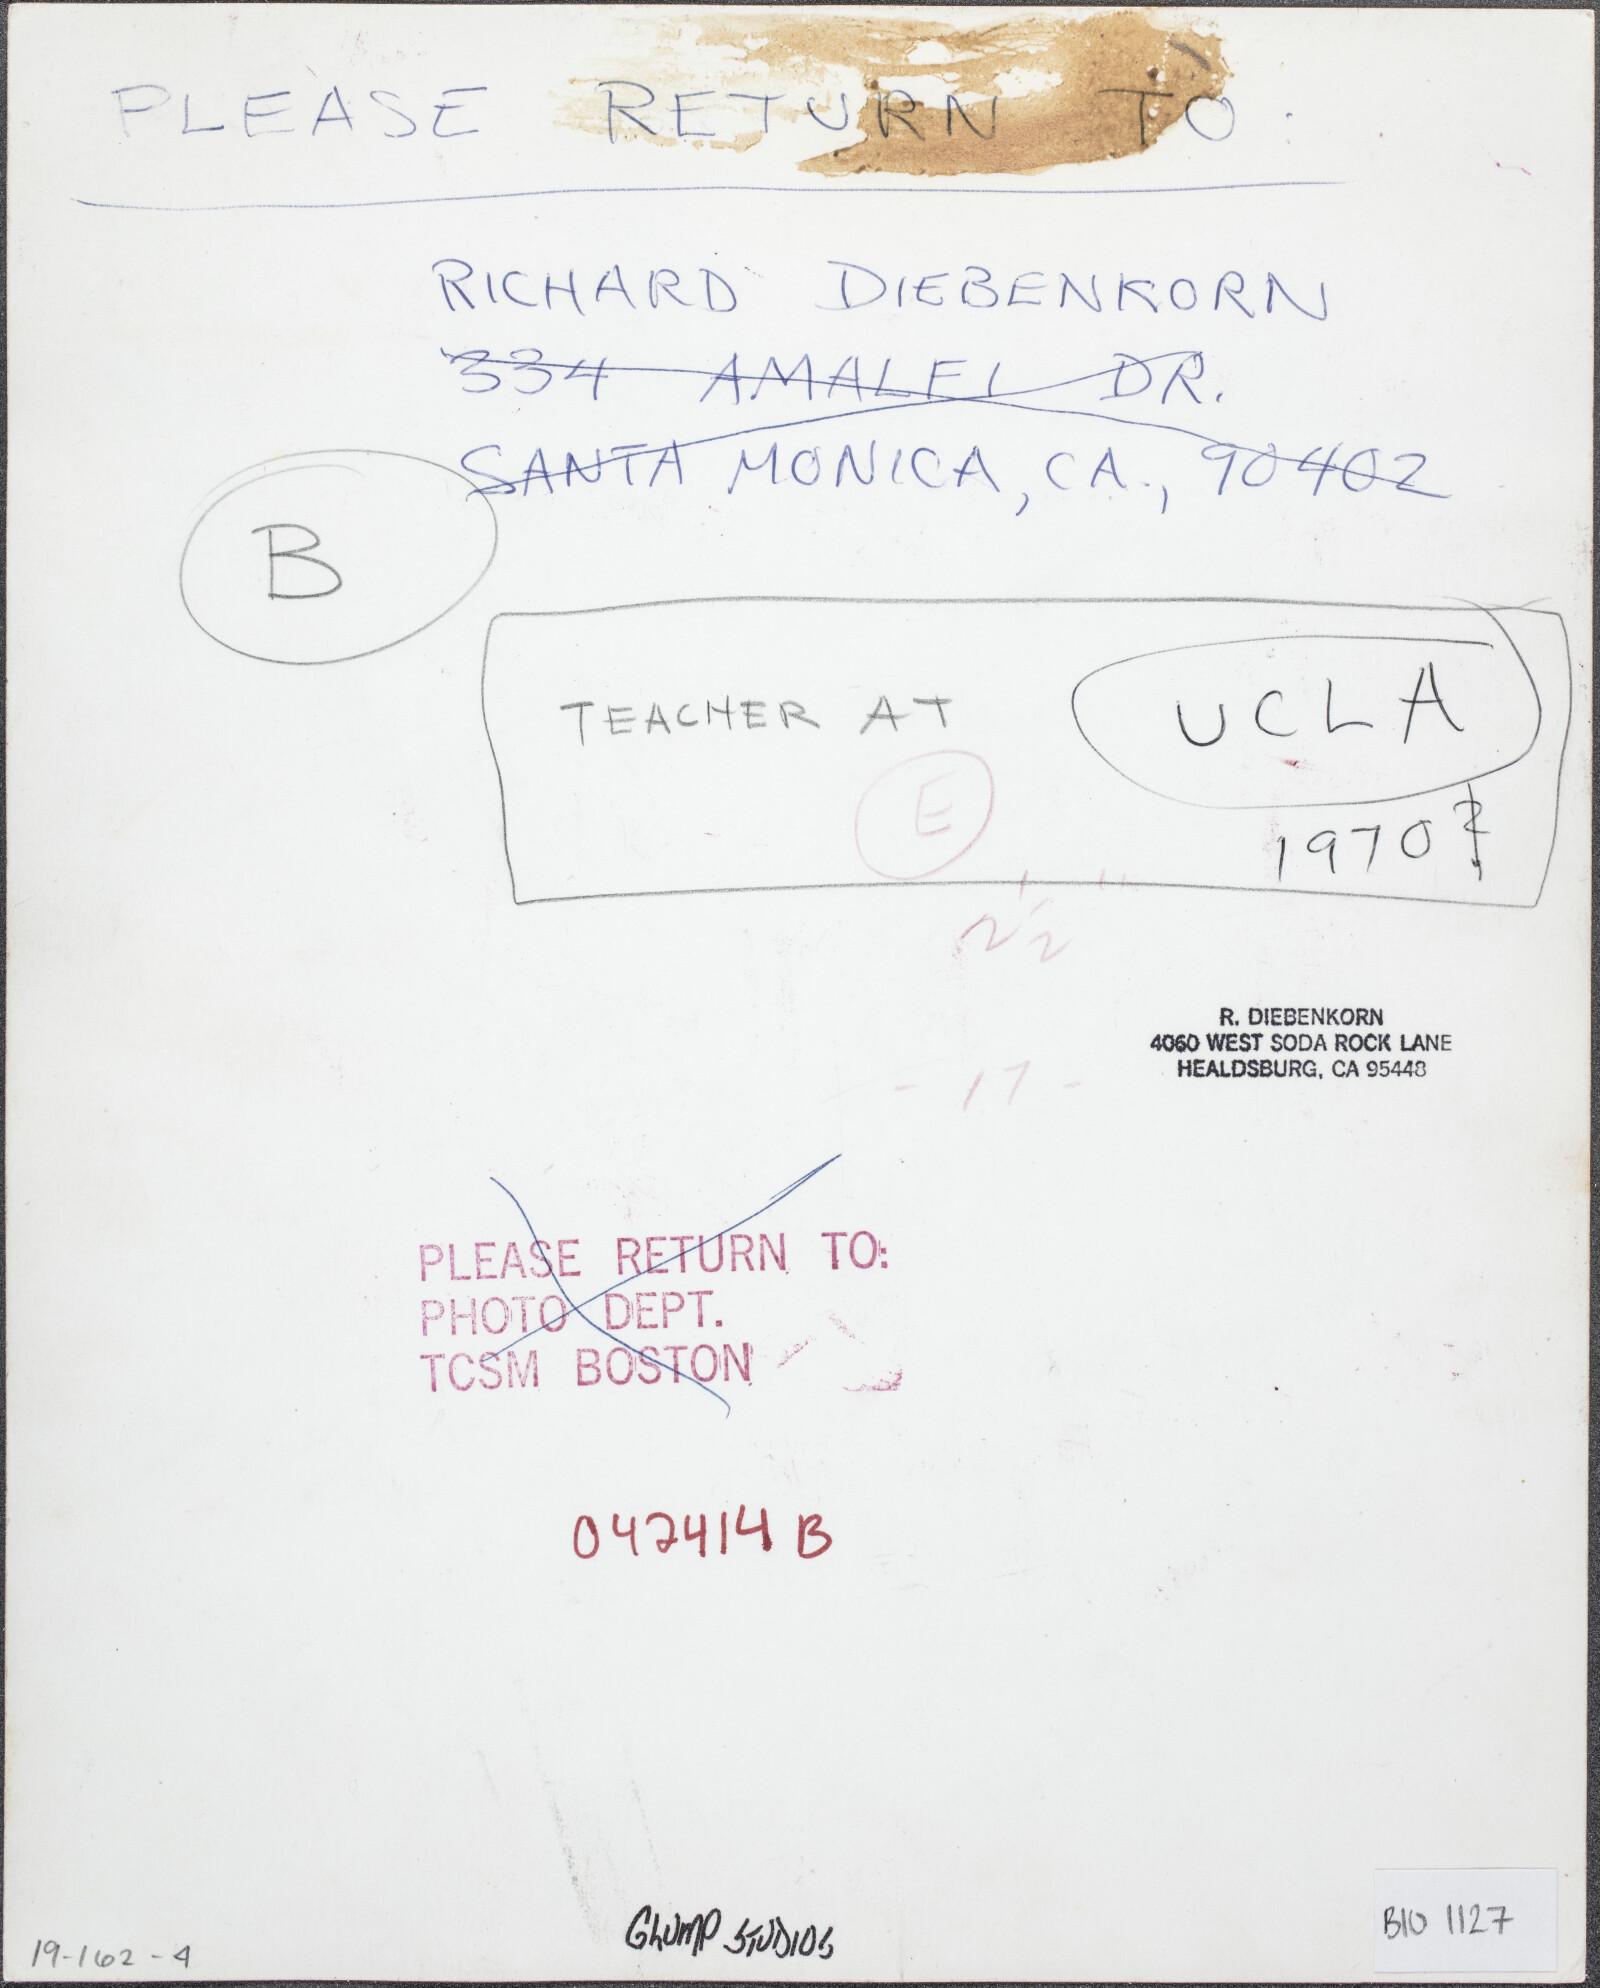 PLEASE RETURN TO:
RICHARD DIEBENKORN
334 AMALFI DR.
SANTA MONICA, CA., 90402
B
TEACHER AT UCLA
E
1970?
2 1/2"
R. DIEBENKORN
4060 WEST SODA ROCK LANE
HEALDSBURG, CA 95448
- 17 -
PLEASE RETURN TO:
PHOTO DEPT.
TCSM BOSTON
042414 B
GLUMP STUDIOS
BIO 1127
19-162-4